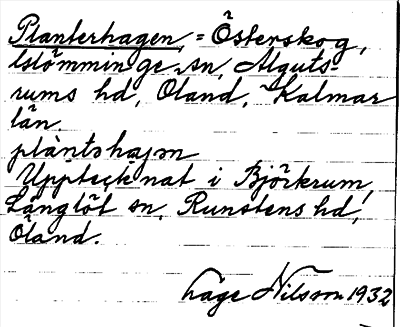 Planterhagen, = Österskog,
Glömminge sn, Alguts-
rums hd, Öland, Kalmar
län.
plàntshajən
Upptecknat i Björkrum,
Långlöt sn, Runstens hd,
Öland.
Låge Nilsson 1932